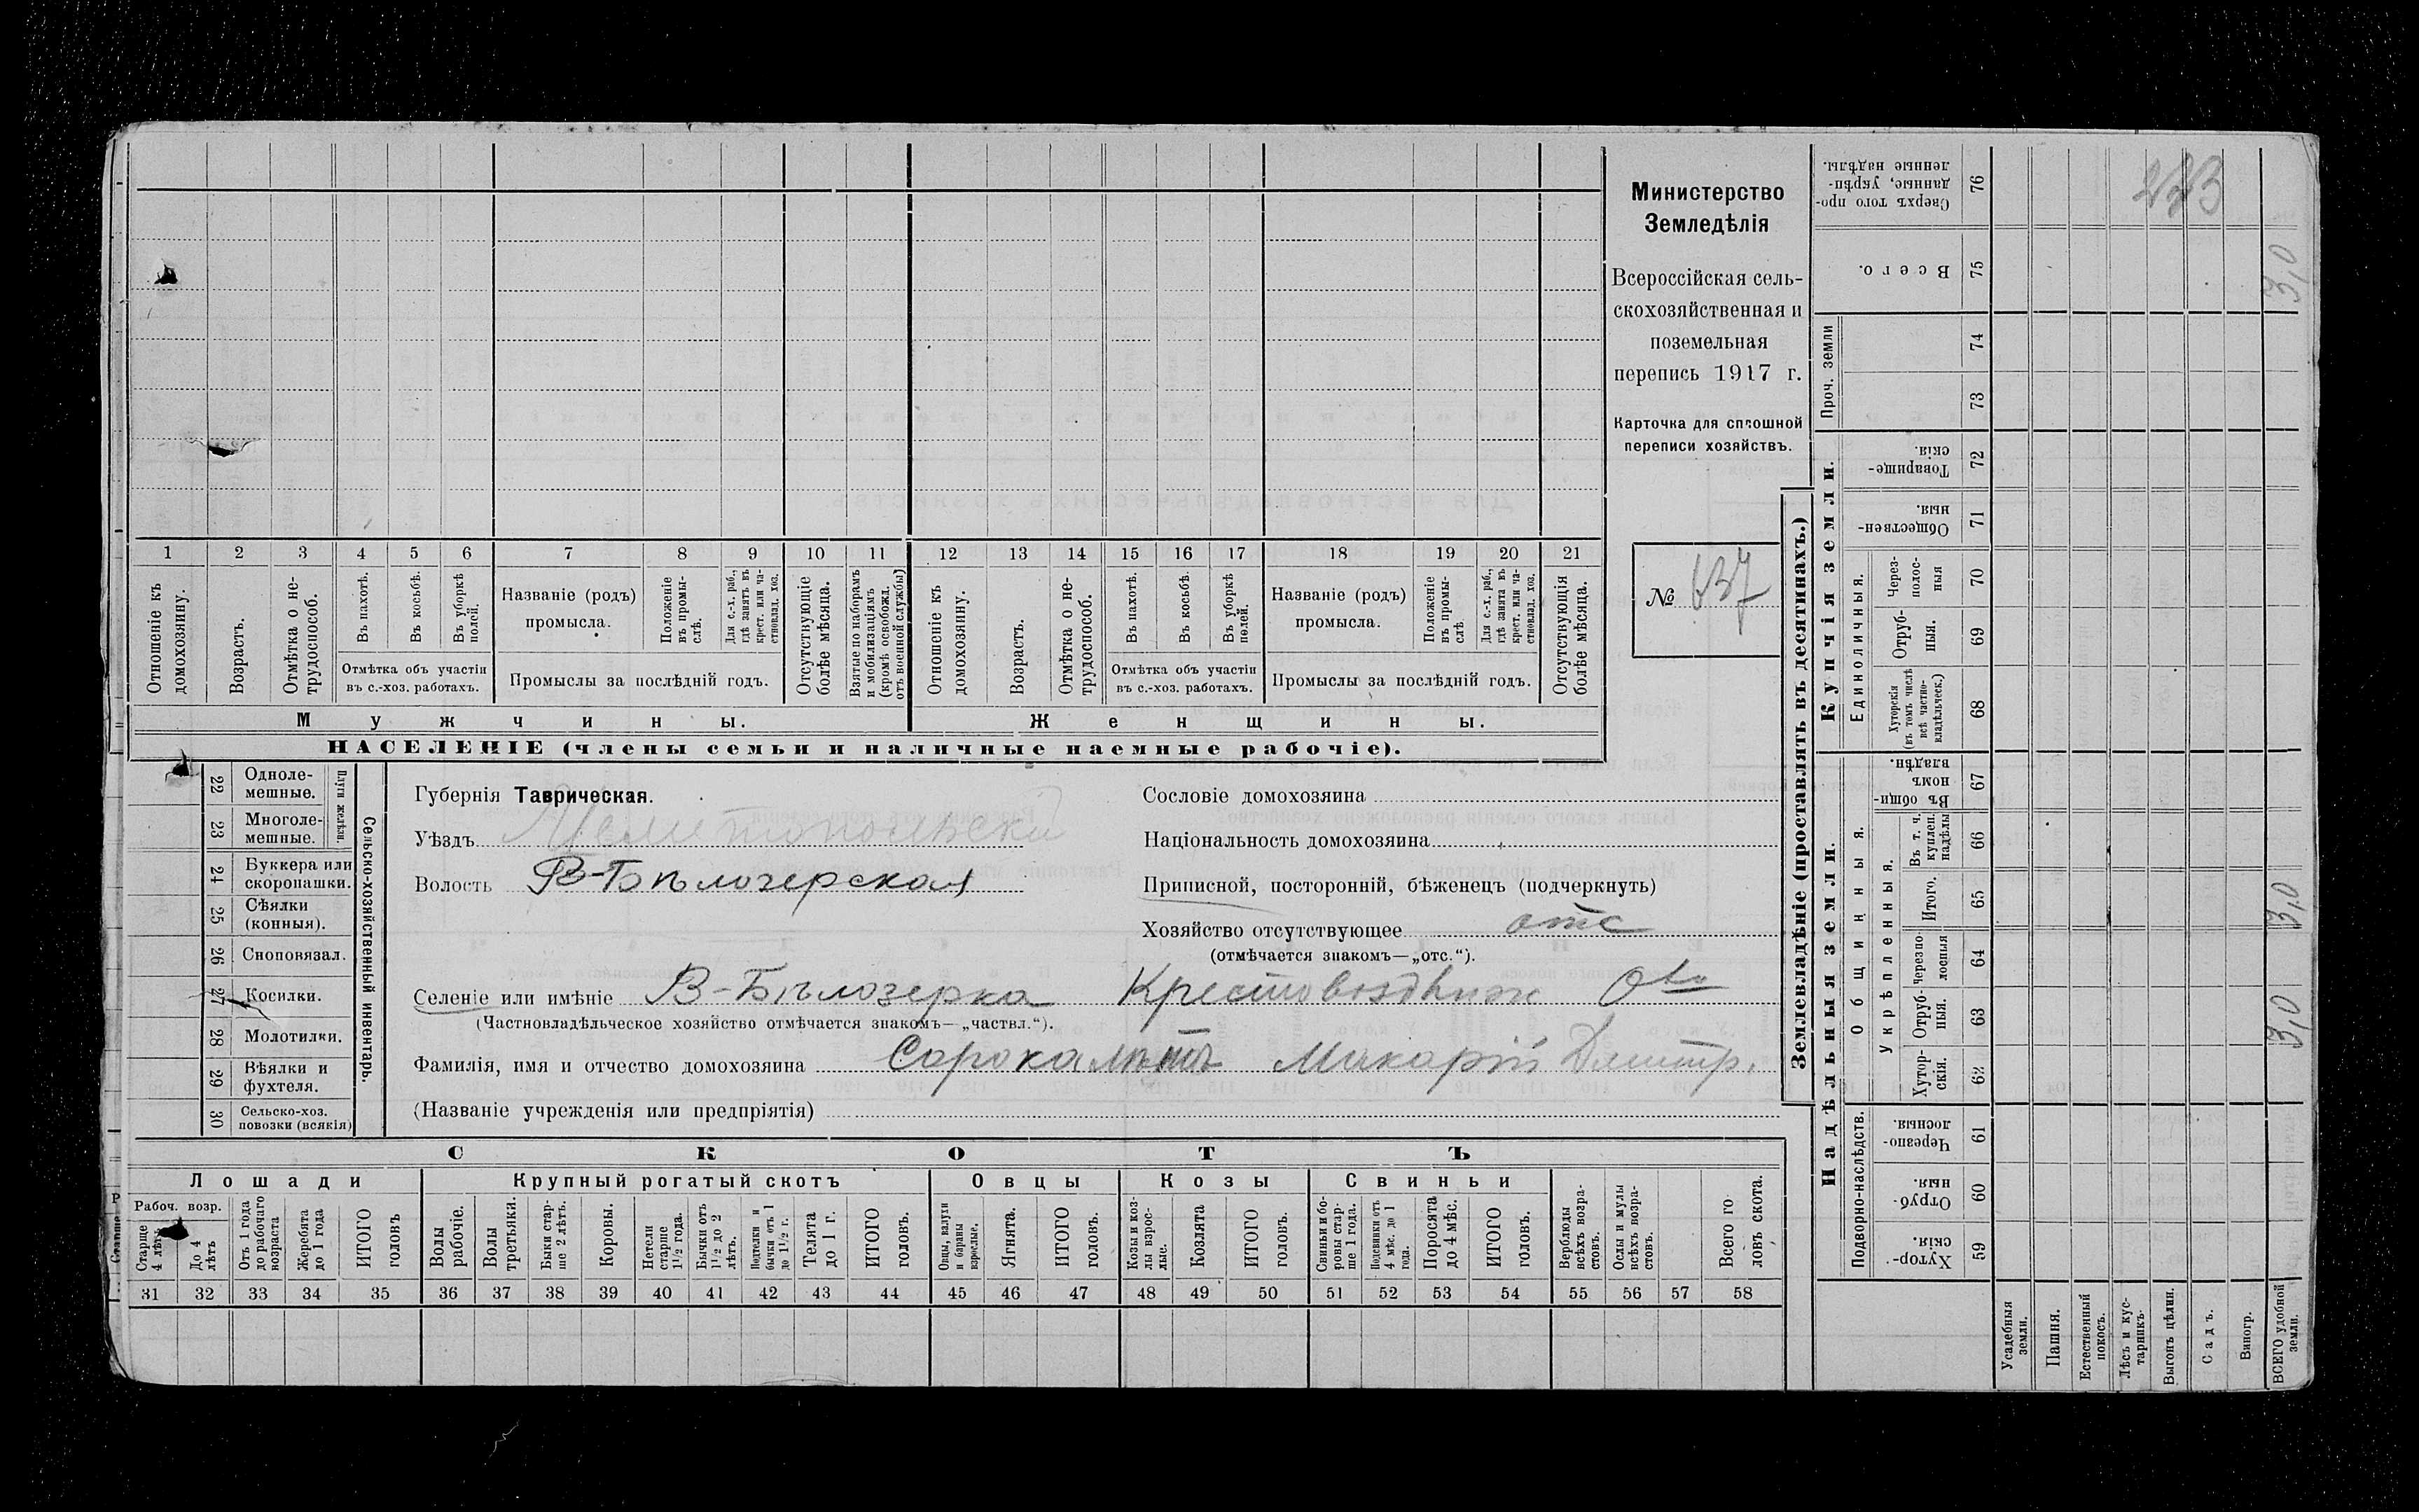 1 2 3 4 5 6 7 8 9 10 11 12 13 14 15 16 17 18 19 20 21
Отношеніе къ домохозяину.
Возрастъ.
Отмѣтка о не-
трудоспособ.
Въ пахотѣ.
Въ косьбѣ.
Въ уборкѣ
полей.
Отмѣтка объ участіи
въ с.-хоз. работахъ.
Названіе (родъ)
промысла.
Положеніе
въ промы-
слѣ.
Для с.-х. раб.,
гдѣ занятъ въ
крест. или ча-
стновлад. хоз.
Промыслы за послѣдній годъ.
Отсутствующіе
болѣе мѣсяца.
Взятые по наборамъ
и мобилизаціямъ
(кромѣ освобожд.
отъ военной службы)
Отношеніе къ
домохозяину.
Возрастъ.
Отмѣтка о не-
трудоспособ.
Въ пахотѣ.
Въ косьбѣ.
Въ уборкѣ
полей.
Отмѣтка объ участіи
въ с.-хоз. работахъ.
Названіе (родъ)
промысла.
Положеніе
въ промы-
слѣ.
Для с.-х. раб.,
гдѣ занята въ
крест. или ча-
стновлад. хоз.
Промыслы за послѣдній годъ.
Отсутствующія
болѣе мѣсяца.
Мужчины.
Женщины.
НАСЕЛЕНІЕ (члены семьи и наличные наемные рабочіе).
Министерство
Земледѣлія
Всероссійская сель-
скохозяйственная и
поземельная
перепись 1917 г.
Карточка для сплошной
переписи хозяйствъ.
№ 637
22 Одноле-
мешные.
23 Многоле-
мешные.
Плуги желѣзн.
24 Буккера или
скоропашки.
25 Сѣялки
(конныя).
26 Сноповязал.
27 Косилки.
28 Молотилки.
29 Вѣялки и
фухтеля.
30 Сельско-хоз.
повозки (всякія)
Сельско-хозяйственный инвентарь.
Губернія Таврическая.
Уѣздъ Мелитопольскій
Волость В-Бѣлозерская
Сословіе домохозяина
Національность домохозяина
Приписной, посторонній, бѣженецъ (подчеркнуть)
Хозяйство отсутствующее отс
(отмѣчается знакомъ—„отс.“).
Селеніе или имѣніе В-Бѣлозерка Крестовоздвиж О-во
(Частновладѣльческое хозяйство отмѣчается знакомъ—„частвл.“).
Фамилія, имя и отчество домохозяина Сорокалѣтъ Макарій Дмитр.
(Названіе учрежденія или предпріятія)
СКОТЪ
Лошади
Крупный рогатый скотъ
Овцы
Козы
Свиньи
Рабоч. возр.
Старше
4 лѣтъ
До 4
лѣтъ
Отъ 1 года
до рабочаго
возраста
Жеребята
до 1 года
ИТОГО
головъ
Волы
рабочіе.
Волы
третьяки.
Быки стар-
ше 2 лѣтъ.
Коровы.
Нетели
старше
1½ года.
Бычки отъ
1½ до 2
лѣтъ.
Подтелки и
бычки отъ 1
до 1½ г.
Телята
до 1 г.
ИТОГО
головъ.
Овцы, валухи
и бараны
взрослые.
Ягнята.
ИТОГО
головъ.
Козы и коз-
лы взрос-
лые.
Козлята
ИТОГО
головъ.
Свиньи и бо-
ровы стар-
ше 1 года.
Подсвинки отъ
4 мѣс. до 1
года.
Поросята
до 4 мѣс.
ИТОГО
головъ.
Верблюды
всѣхъ возра-
стовъ.
Ослы и мулы
всѣхъ возра-
стовъ.
Всего го
ловъ скота.
31 32 33 34 35 36 37 38 39 40 41 42 43 44 45 46 47 48 49 50 51 52 53 54 55 56 57 58
Землевладѣніе (проставлять въ десятинахъ.)
Надѣльныя земли.
Купчія земли.
Проч. земли
Подворно-наслѣдств.
Общинныя.
Укрѣпленныя.
Единоличныя.
Сверхъ того про-
данные, укрѣп-
ленные надѣлы.
76
Всего.
75
74
73
Товарище-
скія.
72
Обществен-
ныя.
71
Через-
полос-
ныя
70
Отруб-
ныя.
69
Хуторскія
(въ томъ числѣ
всѣ частно-
владѣльческ.)
68
Въ общин-
номъ
владѣн.
67
Въ т. ч.
куплен.
надѣлы
66
Итого.
65
Черезпо
лосныя
64
Отруб-
ныя.
63
Хутор-
скія.
62
Черезпо-
лосныя.
61
Отруб-
ныя.
60
Хутор-
скія.
59
Усадебныя
земли.
Пашня.
Естественный
покосъ.
Лѣсъ и кус-
тарникъ.
Выгонъ цѣлин.
Садъ.
Виногр.
ВСЕГО удобной
земли.
3,0
3,0
3,0